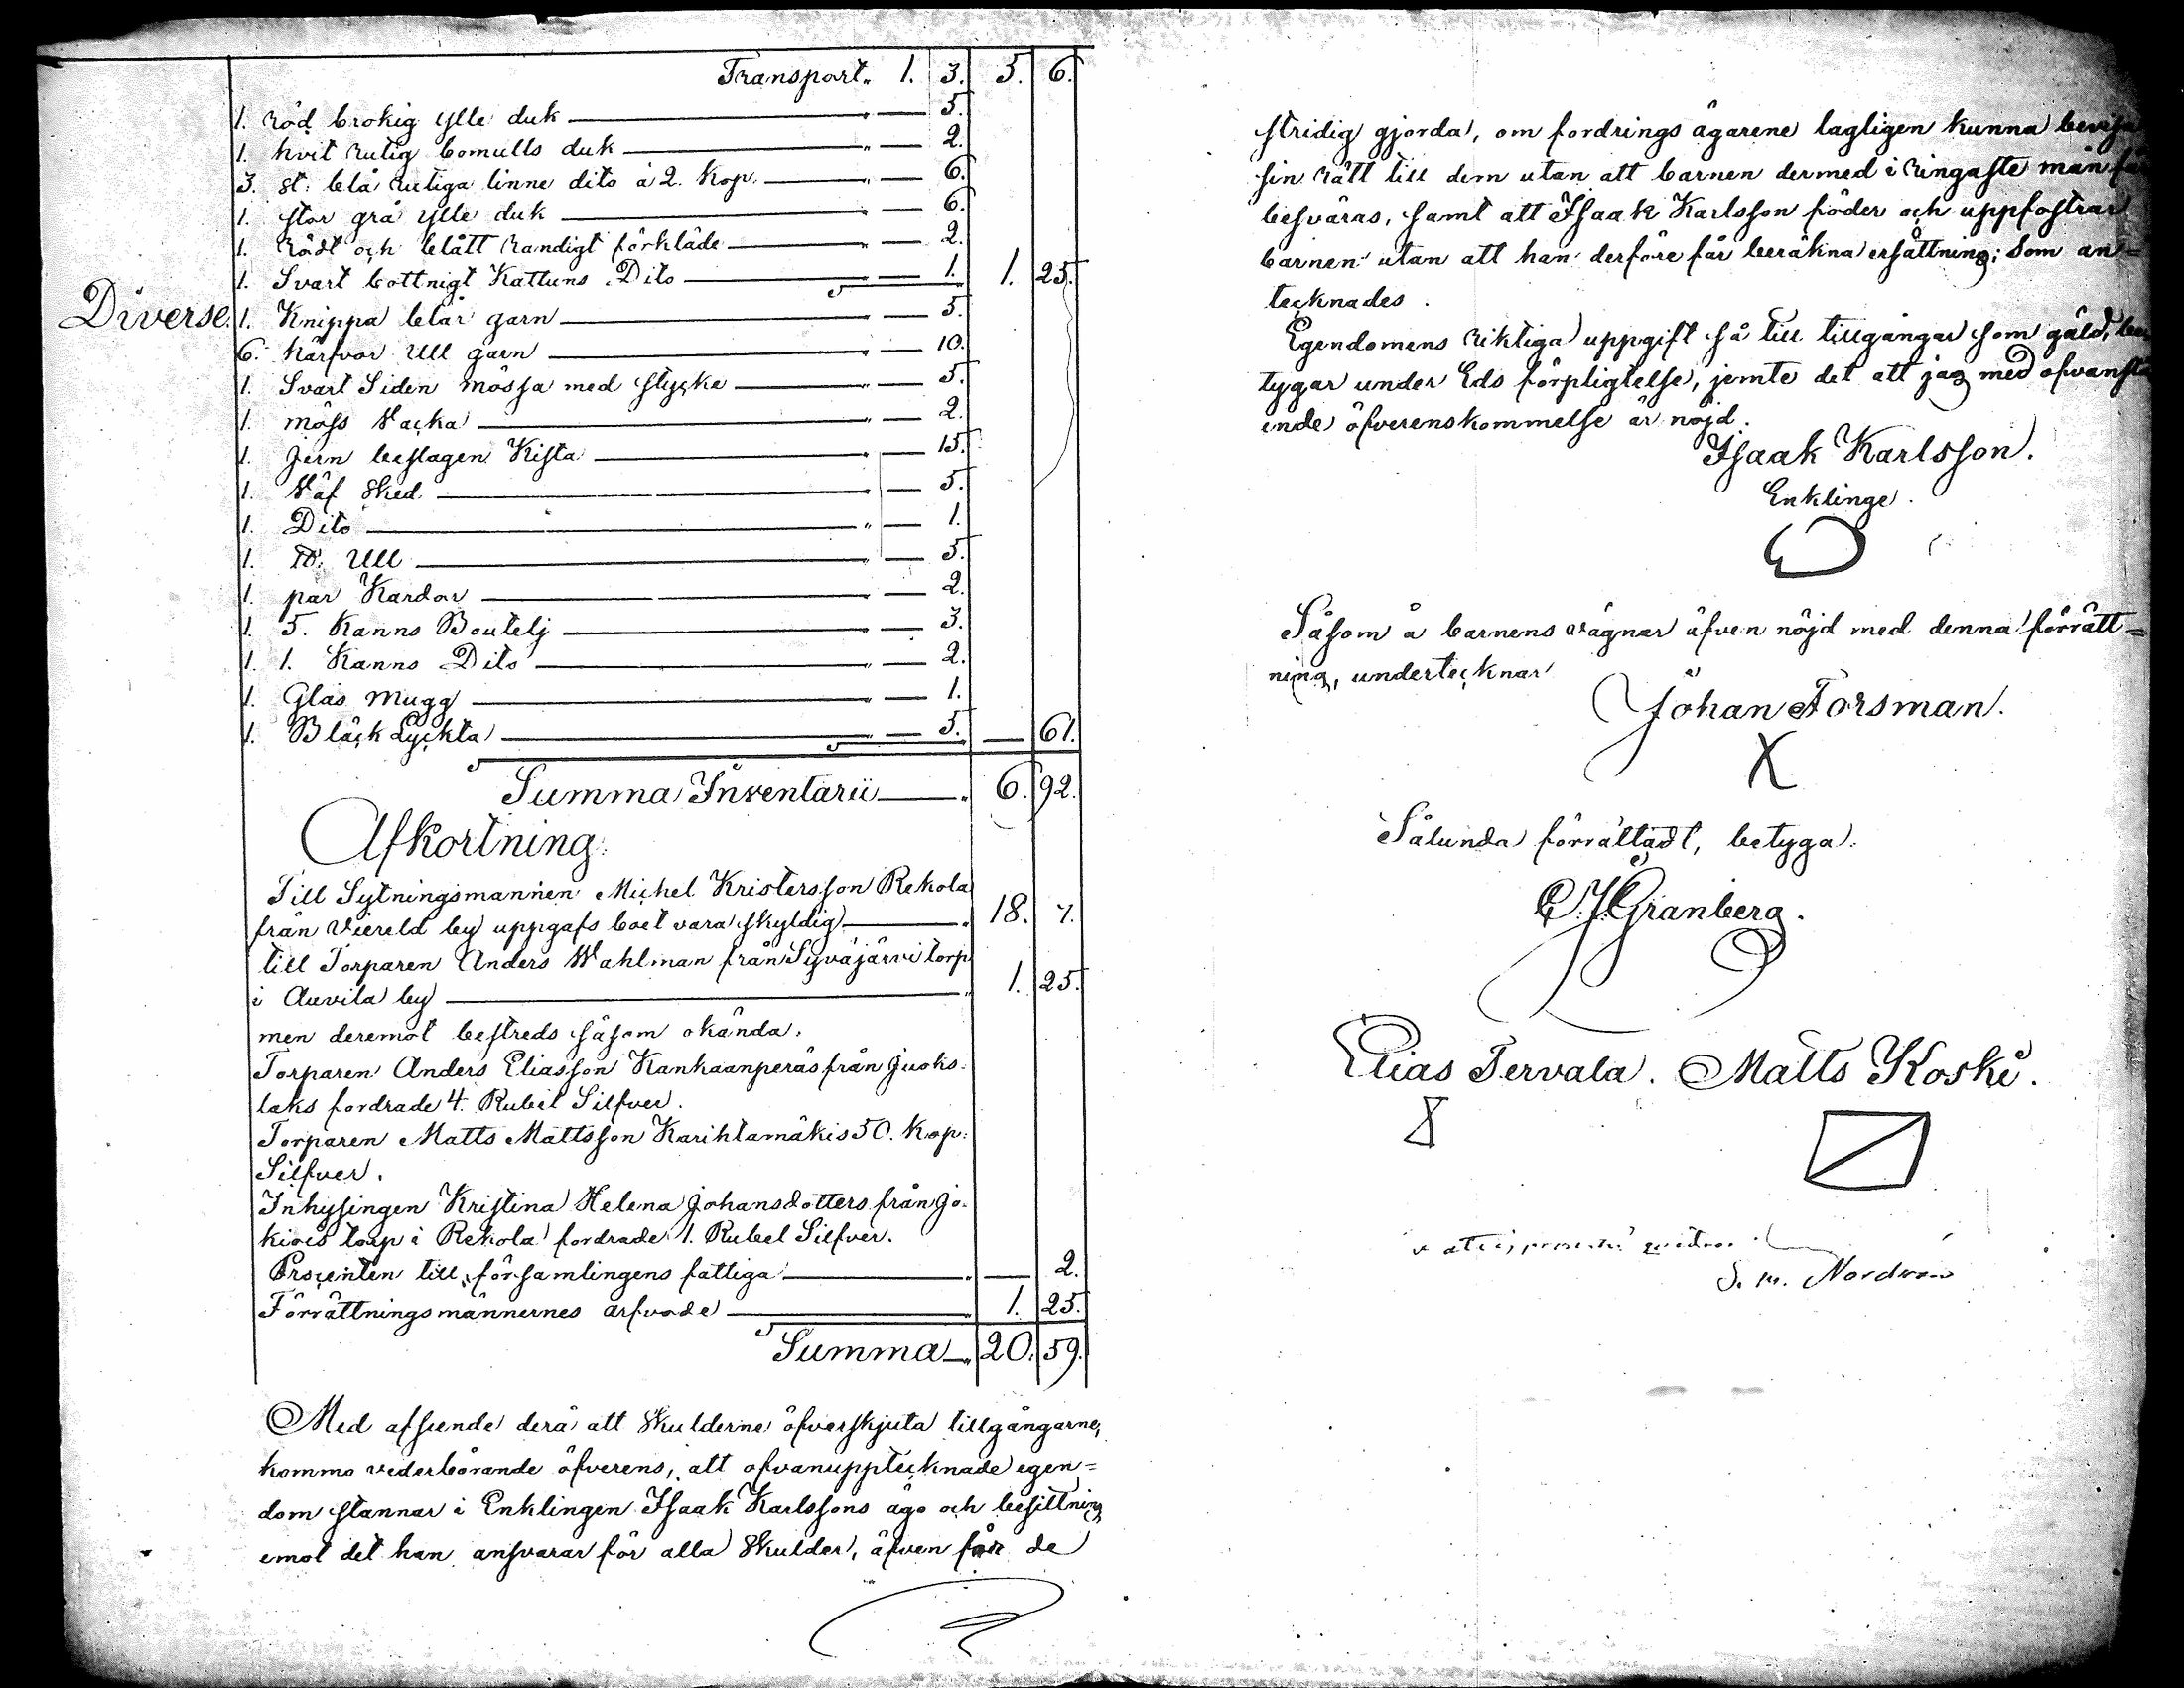 Transport „ 1. 3. 5. 6.
1. röd brokig ylle duk „ — 5.
1. hvit rutig bomulls duk „ — 2.
3. st: blå rutiga linne dito à 2. Kop. „ — 6.
1. stor grå ylle duk „ — 6.
1. Rödt och blått randigt förkläde „ — 2.
1. Svart bottnigt Kattuns Dito „ — 1. 1. 25.
Diverse. 1. Knippa blår garn „ — 5.
6. härfvor Ull garn „ — 10.
1. Svart Siden mössa med stycke „ — 5.
1. möss Vacka „ — 2.
1. Jern beslagen Kista „ — 15.
1. Väf Sked „ — 5.
1. Dito „ — 1.
1. ℔: Ull „ — 5.
1. par Kardor „ — 2.
1. 5. Kanns Boutelj „ — 3.
1. 1. Kanns Dito „ — 2.
1. Glas Mugg „ — 1.
1. Bläck Lyckta „ — 5. — 61.
Summa Inventarii „ 6. 92.
Afkortning.
Till Sytningsmannen Michel Kristersson Rekola
från Viereld by uppgafs boet vara skyldig „ 18. 7.
till Torparen Anders Wahlman från Syväjärvi torp
i Auvila by „ 1. 25.
men deremot bestreds såsom okända.
Torparen Anders Eliasson Kankaanperäs från Juoks-
laks fordrade 4. Rubel Silfver.
Torparen Matts Mattsson Karihtamäkis 50. Kop:
Silfver.
Inhysingen Kristina Helena Johansdotters från Jo-
kiois torp i Rekola fordrade 1. Rubel Silfver.
Procenten till församlingens fattiga „ — 2.
Förrättningsmännernes arfvode „ 1. 25.
Summa „ 20. 59.
Med afseende derå att Skulderne öfverskjuta tillgångarne,
kommo vederbörande öfverens, att ofvanupptecknade egen=
dom stannar i Enklingen Isaak Karlssons ägo och besittning
emot det han ansvarar för alla Skulder, äfven för de
stridig gjorda, om fordrings ägarene lagligen kunna bevisa
sin rätt till dem utan att barnen dermed i ringaste mån få
besväras, samt att Isaak Karlsson föder och uppfostrar
barnen utan att han derföre får beräkna ersättning; Som an=
tecknades.
Egendomens riktiga uppgift så till tillgångar som gäld, be
tygar under Eds förpligtelse, jemte det att jag med ofvanstå
ende öfverenskommelse är nöjd.
Isaak Karlsson.
Enklinge.
Såsom å barnens vägnar äfven nöjd med denna förrätt=
ning, undertecknar
Johan Forsman.
X
Sålunda förrättadt, betyga.
C. J. Granberg.
Elias Tervala. Matts Koski.
S. M.